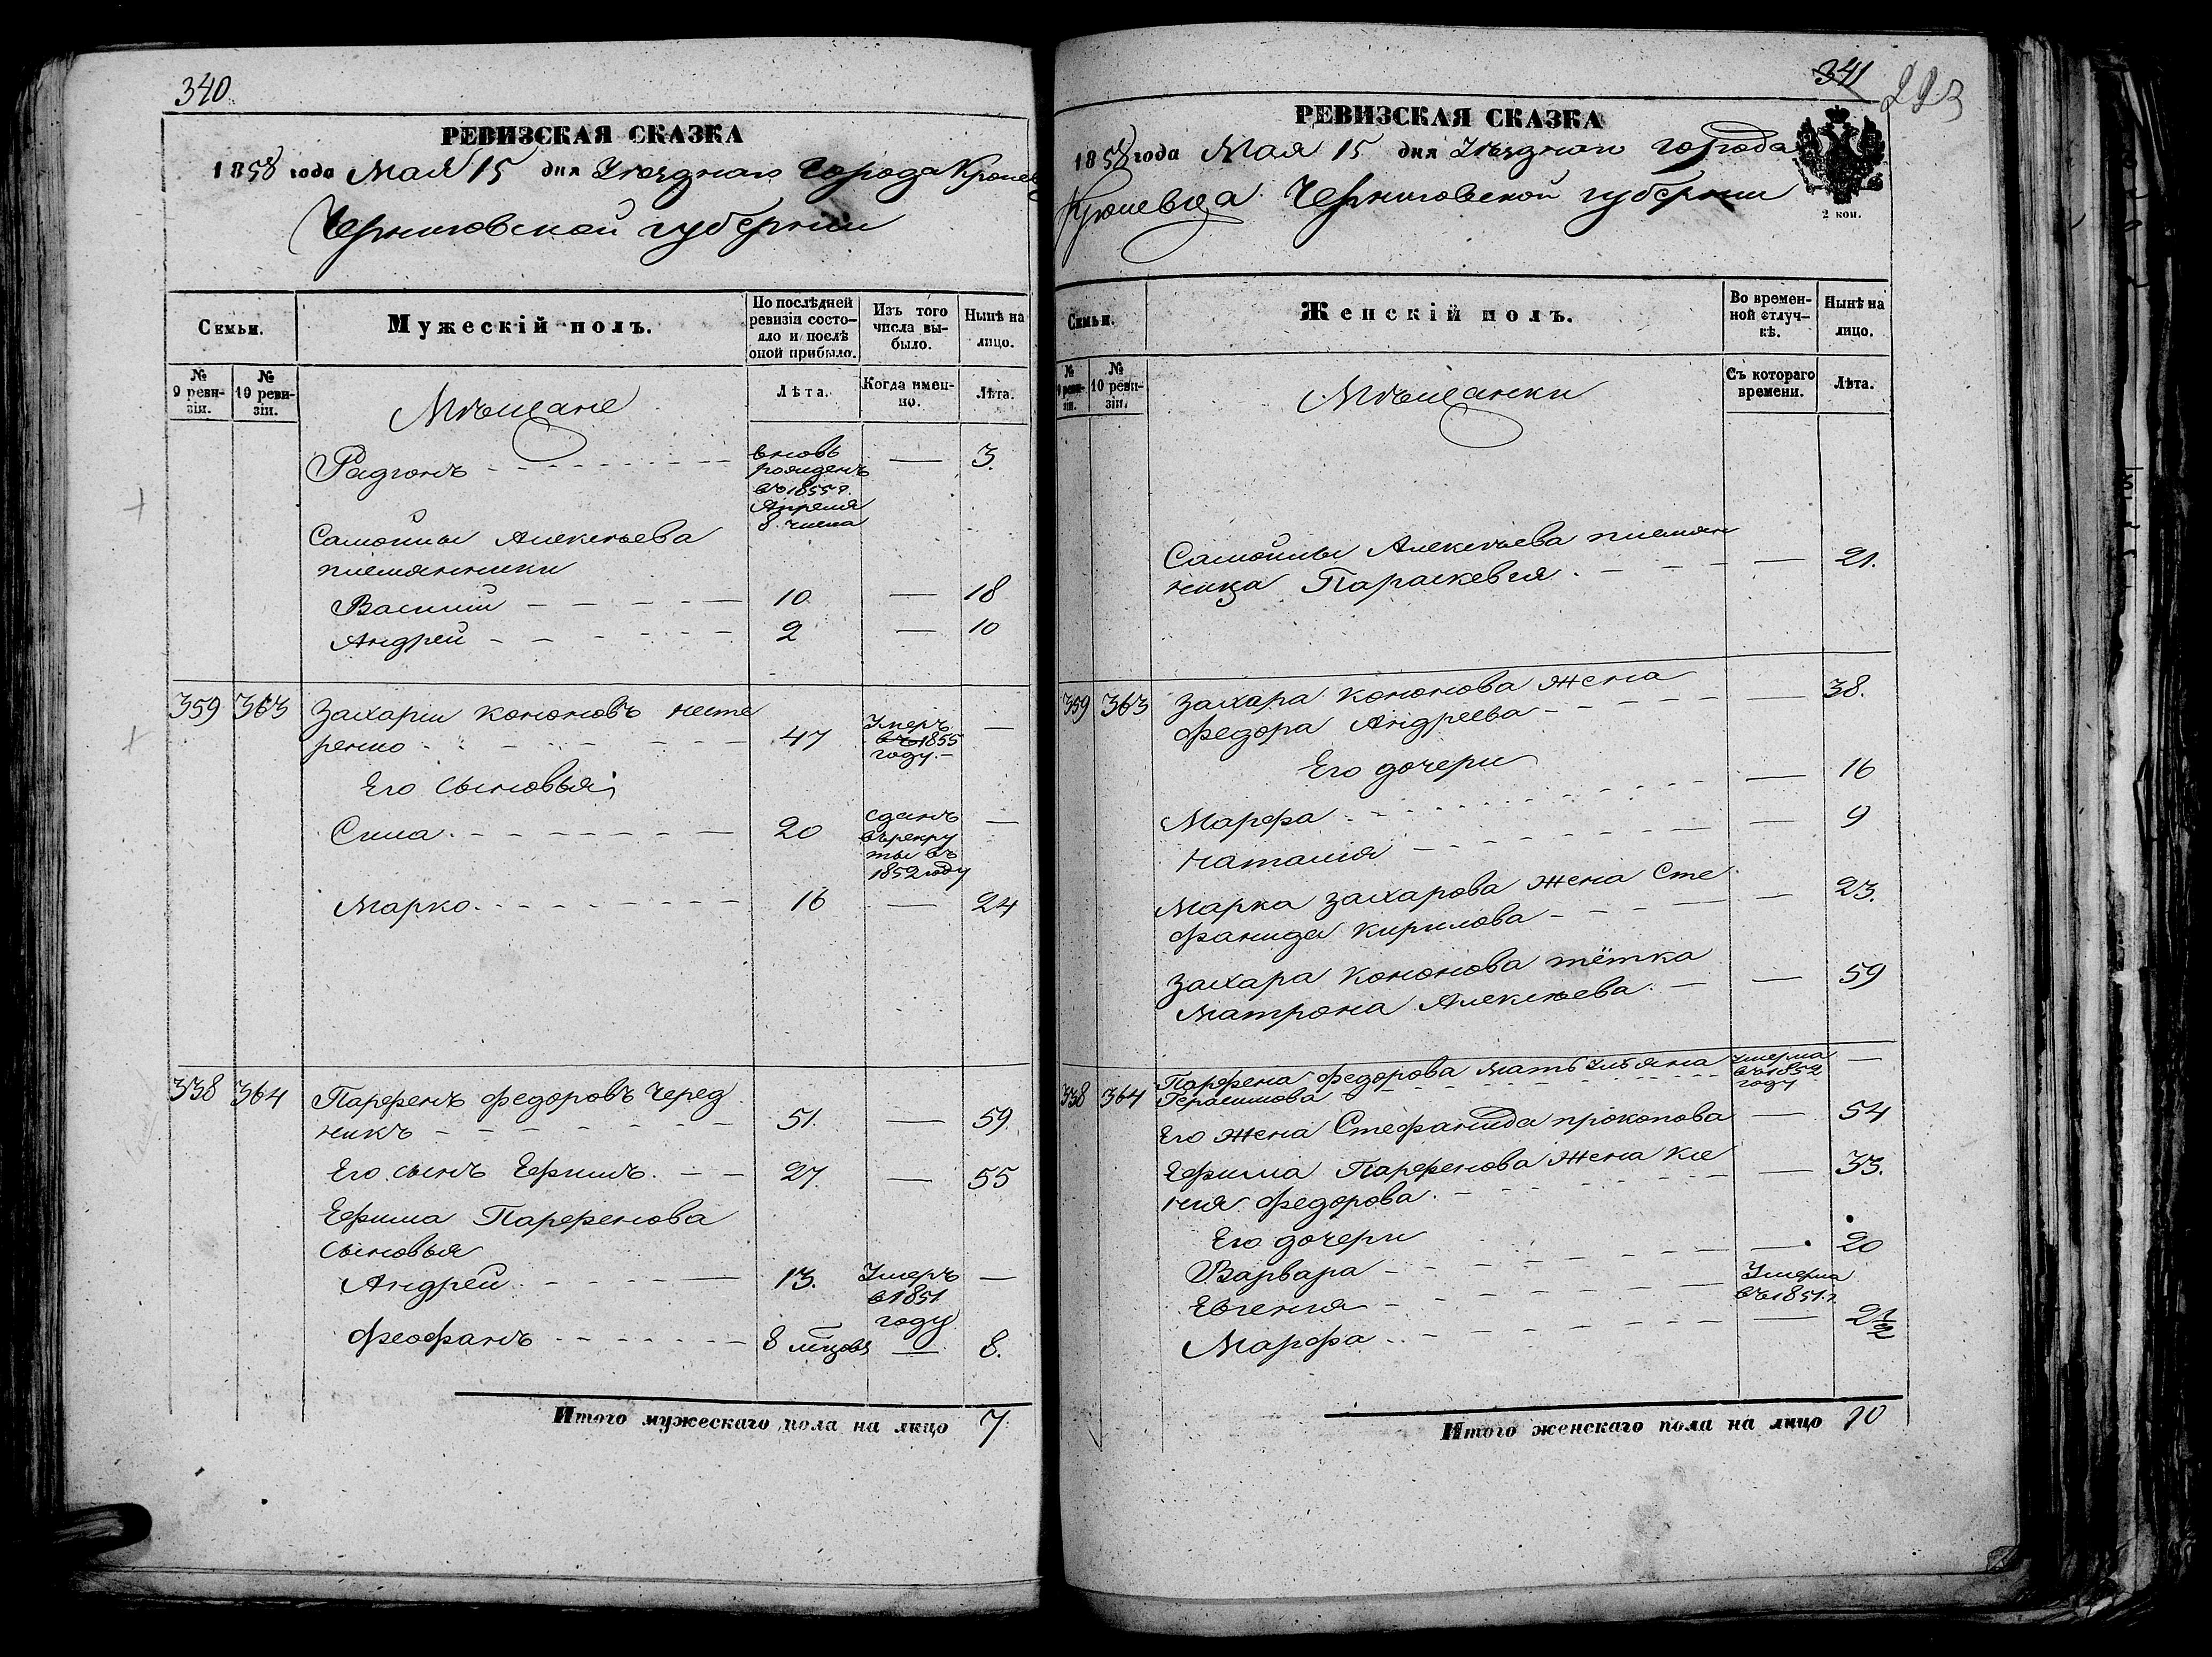 340
РЕВИЗСКАЯ СКАЗКА
1858 года Мая 15 дня Уезднаго Города Кролев
Черниговской губернии
Семьи.
Мужескій полъ.
По послѣдней ревизіи состо-
яло и послѣ оной прибыло.
Изъ того числа вы-
было.
Нынѣ на лицо.
№ 9 реви-
зіи.
№ 10 реви-
зіи.
Мѣщане
Лѣта.
Когда имен-
но.
Лѣта.
Радіонъ — 3.
вновь
рожденъ
въ 1855 г.
Апреля
8 числа
Самойлы Алексѣева
племянники
Василий 10 — 18
Андрей 2 — 10
359 363 Захарий Кононовъ Несте
ренко 47 —
Умеръ
въ 1855
году.
Его сыновья:
Сила 20 —
сданъ
въ рекру
ты въ
1852 году
Марко 16 — 24
338 364 Парфенъ Федоровъ Черед
никъ 51. — 59.
Его сынъ Ефимъ. 27. — 55
Ефима Парфенова
сыновья
Андрей 13. —
Умеръ
в 1851
году
Феофанъ 8 мѣсцовъ — 8.
Итого мужескаго пола на лицо 7
341
223
РЕВИЗСКАЯ СКАЗКА
1858 года Мая 15 дня Уезднаго Города
Кролевца Черниговской губернии
2 коп.
Семьи.
Женскій полъ.
Во времен-
ной отлуч-
кѣ.
Нынѣ на лицо.
№ 9 реви-
зіи.
№ 10 реви-
зіи.
Мѣщанки
Съ котораго времени.
Лѣта.
Самойлы Алексѣева племян
ница Параскевия — 21.
359 363 Захара Кононова жена
Федора Андреева — 38.
Его дочери
Марфа — 16
Наталия — 9
Марка Захарова жена Сте
фанида Кирилова — 23.
Захара Кононова тётка
Матрона Алексѣева — 59
338 364 Парфена Федорова мать Ульяна
Герасимова —
Умерла
въ 1852
году
Его жена Стефанида Прокопова — 54
Ефима Парфенова жена Ксе
ния Федорова — 33.
Его дочери
Варвара — 20
Евгения
Умерла
въ 1851 г.
Марфа — 2 1/2
Итого женскаго пола на лицо 10